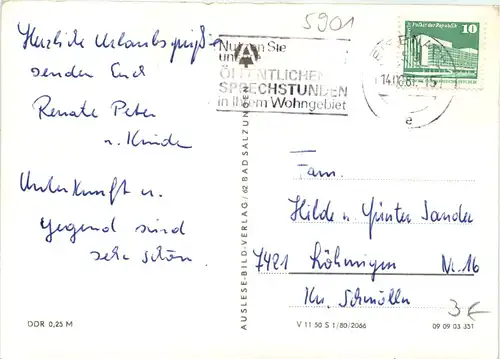 5901
Herzliche Urlaubsgrüße
senden Euch
Renate Peter
u. Kinder
Unterkunft u.
Gegend sind
sehr schön.
Nutzen Sie
ÖFFENTLICHEN
SPRECHSTUNDEN
in Ihrem Wohngebiet
Palast der Republik
10
14.
e
AUSLESE-BILD-VERLAG/62 BAD SALZUNGEN
Fam.
Hilde u. Günter Sander
7421 Löhmigen Nr. 16
Kr. Schmölln
3€
DDR 0,25 M
V 11 50 S 1/80/2066
09 09 03 351